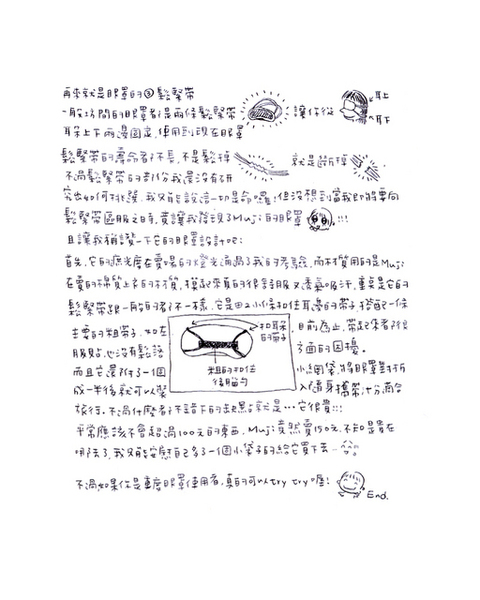 再來就是眼罩的③鬆緊帶
一般坊間的眼罩都是兩條鬆緊帶 讓你從 耳上
耳下
耳朵上下兩邊固定,使用到現在眼罩
鬆緊帶的壽命都不長,不是鬆掉 就是斷掉
不過鬆緊帶的部份我還沒有研
究出如何挑選,我只能說這一切是命囉!但沒想到當我即將要向
鬆緊帶屈服之時,竟讓我發現了Muji的眼罩 !!!
且讓我稱讚一下它的眼罩設計吧:
首先,它的遮光度在賣場的燈光通過了我的考驗,而材質用的是Muji
在賣的棉質上衣的材質,摸起來真的很舒服又透氣吸汗,重點是它的
鬆緊帶跟一般的都不一樣,它是由2小條扣住耳邊的帶子,搭配一條
主要的粗帶子,扣在 扣耳朵的帶子 目前為止,帶起來都很
服貼,也沒有鬆誇 方面的困擾。
粗的扣住後腦勺
而且它還附了一個 小網袋,將眼罩對折
成一半後就可以裝 入隨身攜帶,十分適合
旅行,不過什麼都不誇下的缺點就是…它很貴!!!
平常應該不會超過100元的東西,Muji竟然賣150元,不知是貴在
哪去了,我只能安慰自己多了一個小袋子的給它買下去…
不過如果你是重度眼罩使用者,真的可以try try喔!
End.